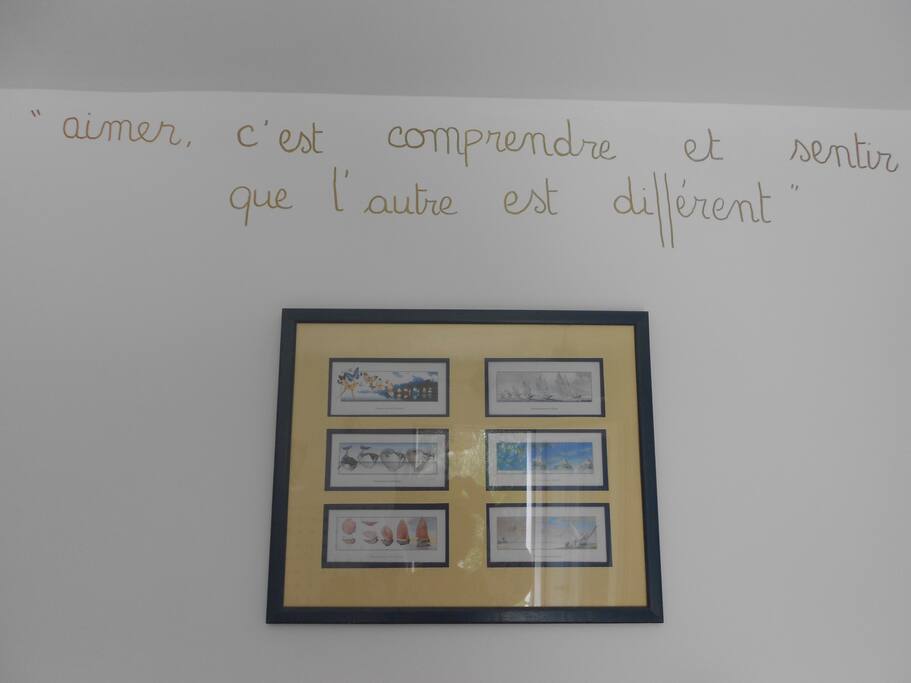 "aimer, c'est comprendre et sentir
que l'autre est différent"